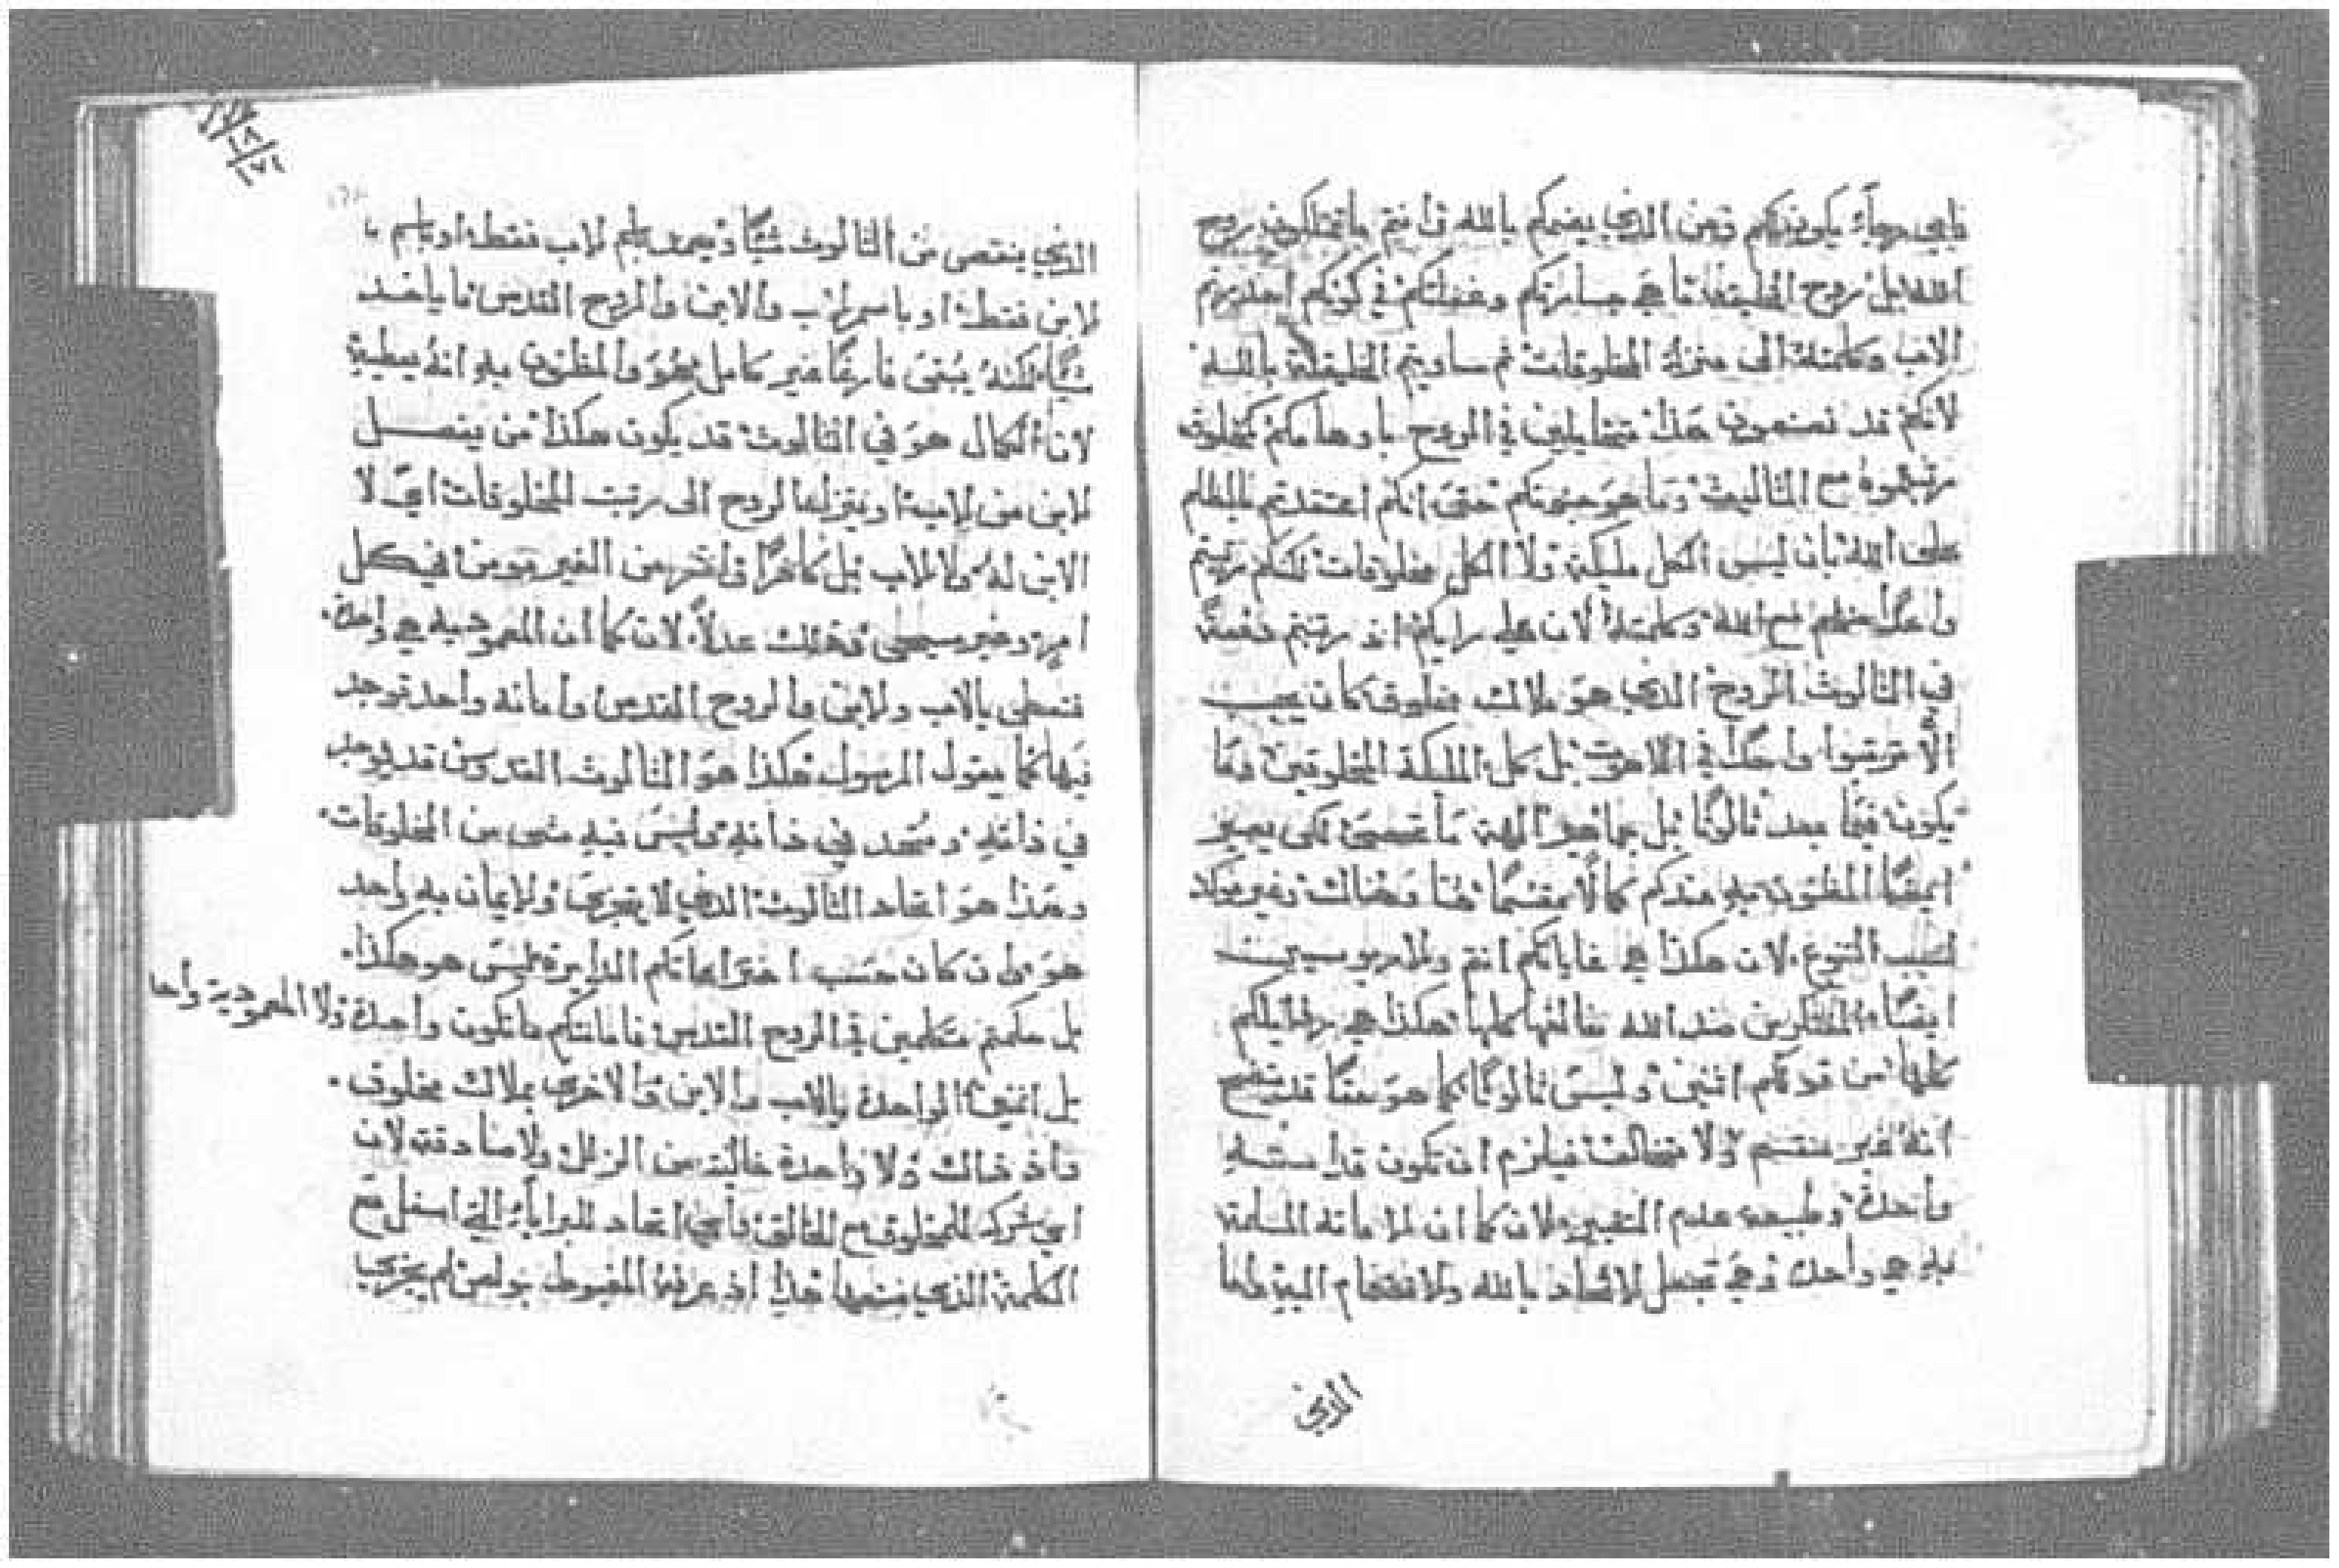 فاي رجاء يكون لكم ومن الذي يضمكم بالله وانتم ما تمتلكون روح
الله بل روح الخليقة ما هي جسارتكم وغفلتكم في كونكم احدرتم
الاب وكلمته الى منزلة المخلوقات ثم ساويتم الخليقة بالله
لانكم قد تصنعون هذا متخايلين في الروح باوهامكم كمخلوق
مع الثالوث وما هو جنونكم حتى انكم اعتقدتم بالظلم
على الله بان ليس الكل مليكة ولا الكل مخلوقات لكنكم رتبتم
واحدًا منهم مع الله وكلمته لان على رايكم اذ رتبتم دفعة
في الثالوث الروح الذي هو ملاك مخلوق كان يجب
الّا ترتبوا واحدًا في اللاهوت بل كل المليكة المخلوقين وما
يكون فيما بعد ثالوثًا بل الهة ما تحصى لكى يصير
ايضًا المظنون به عندكم كمالًا مقسمًا هنا وهناك وغير موكد
لسبب التنوع لان هكذا هي غاياتكم انتم والاريوسيين
ايضًا المفتكرين ضد الله خالقها كلها هكذا هي رذايلكم
كلها من قولكم اثنين وليس ثالوثًا كما هو حقًا قد يتضح
انه غير منقسم ولا متخالف فيلزم ان تكون قداسته
واحدة وطبيعه عديم التغيير لان كما ان الامانه المسلمة
به هي واحدة وهي تجعل الاتحاد بالله والانضمام اليه واما
الذي
الذي ينقص من الثالوث شيًّا ويعمد باسم الاب فقط او باسم
الابن فقط او باسم الاب والابن والروح القدس ما ياخذ
شيًّا لكنه يبقى فارغًا غير كامل هو والمظنون به انه يعطيه
لان الكمال هو في الثالوث قد يكون هكذا من يفصل
الابن من الاب او ينزل الروح الى رتبت المخلوقات اي لا
الابن له ولا الاب بل كافرًا واشر من الغير مومن في كل
امر وغير مسيحي وذلك عدلًا لان كما ان المعموديه هي واحدة
فتعطى بالاب والابن والروح القدس وامانه واحد توجد
فيها كما يقول الرسول هكذا هو الثالوث القدوس قد يوجد
في ذاته ومتحد في ذاته وليس فيه شى من المخلوقات
وهذا هو اتحاد الثالوث الذي لا يتجزى والايمان به واحد
هو وان كان حسب اختراعاتكم الدايرة فليس هو هكذا
بل حكمتم متكلمين في الروح القدس فامانتكم ما تكون واحدة ولا المعمودية واحدا
بل اثنين الواحدة بالاب والابن والاخرى بملاك مخلوق
واذ ذاك ولا واحدة خالية من الزلل ولا صادقة لان
اي شركة للمخلوق مع الخالق واي اتحاد للبرايا التي اسفل مع
الكلمة الذي صنعها هذا اذ عرفه المغبوط بولس لم يجزى